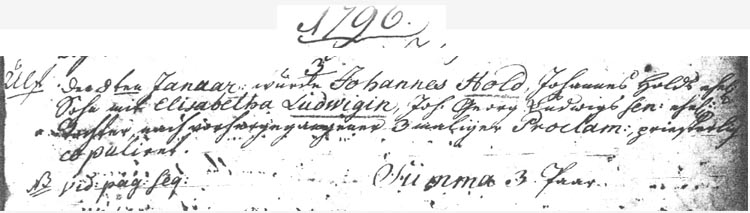 1796.
3
Ulf. den 8ten Januar: wurde Johannes Hold, Johannes Holds ehel:
Sohn mit Elisabetha Ludwigin, Joh Georg Ludwigs sen: ehel:
Tochter, nach vorhergegangener 3maliger Proclam: priesterlich
copuliret.
NB vid: pag: seq: Summa 3 Paar